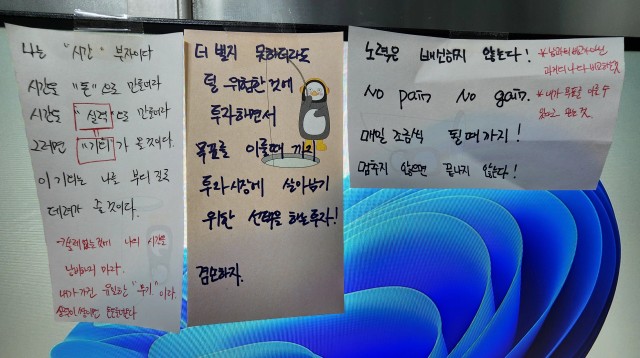 나는 "시간" 부자이다
시간을 "돈"으로 만들어라
시간을 "실력"으로 만들어라
그러면 "기회"가 올것이다.
이 기회는 나를 부의 길로
데려가 줄것이다.
나의 시간을
낭비하지 마라.
내가 가진 유일한 "무기"이다.
더 벌지 못하더라도
덜 위험한 것에
투자하면서
목표를 이룰때 까지
투자시장에 살아남기
위한 선택을 하는 투자!
겸손하자.
노력은 배신하지 않는다!
No pain No gain.
매일 조금씩 될때까지!
멈추지 않으면 끝나지 않는다!
* 남과의 비교가 아닌
과거의 나와 비교하는것
* 내가 목표를 이룰 수
있다고 믿는것.